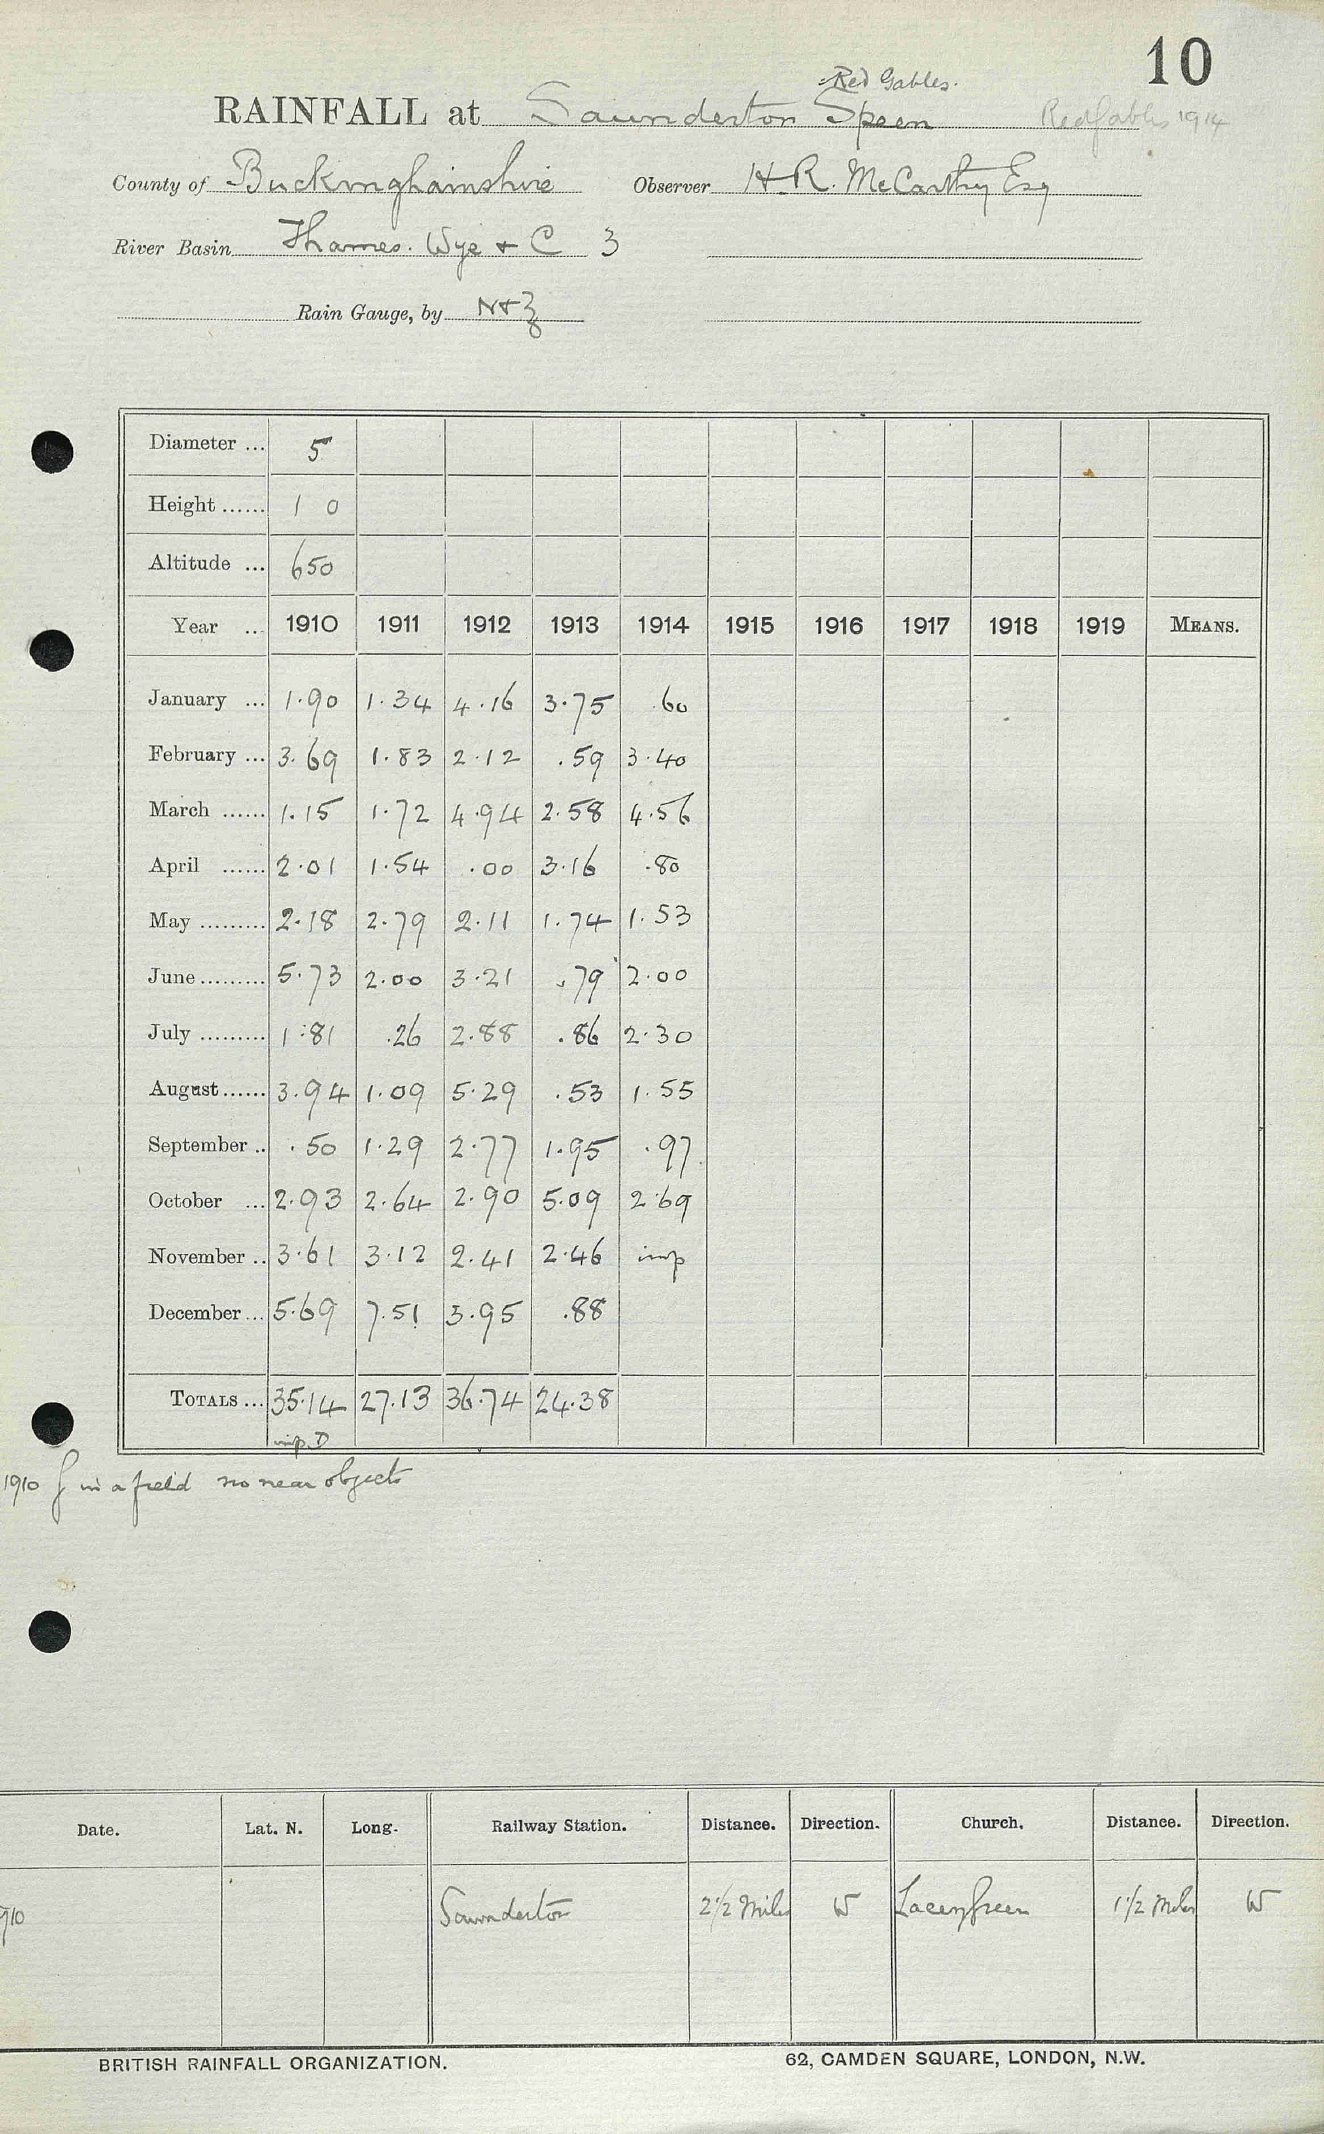 10
Red Gables.
RAINFALL at Saunderton Speen Red Gables 1914
County of Buckinghamshire Observer H. R. McCarthy Esq
River Basin Thames. Wye + C 3
Rain Gauge, by N+Z
Diameter ... 5
Height ...... 1 0
Altitude ... 650
Year .. 1910 1911 1912 1913 1914 1915 1916 1917 1918 1919 MEANS.
January ... 1.90 1.34 4.16 3.75 .60
February ... 3.69 1.83 2.12 .59 3.40
March ...... 1.15 1.72 4.94 2.58 4.56
April ...... 2.01 1.54 .00 3.16 .80
May ......... 2.18 2.79 2.11 1.74 1.53
June ......... 5.73 2.00 3.21 .79 2.00
July ......... 1.81 .26 2.88 .86 2.30
August ...... 3.94 1.09 5.29 .53 1.55
September .. .50 1.29 2.77 1.95 .97
October ... 2.93 2.64 2.90 5.09 2.69
November .. 3.61 3.12 2.41 2.46 imp
December ... 5.69 7.51 3.95 .88
TOTALS ... 35.14 27.13 36.74 24.38
imp. D
1910 G in a field no near objects
Date. Lat. N. Long. Railway Station. Distance. Direction. Church. Distance. Direction.
910 Saunderton 2 1/2 Miles W Lacey Green 1 1/2 Miles W
BRITISH RAINFALL ORGANIZATION. 62, CAMDEN SQUARE, LONDON, N.W.